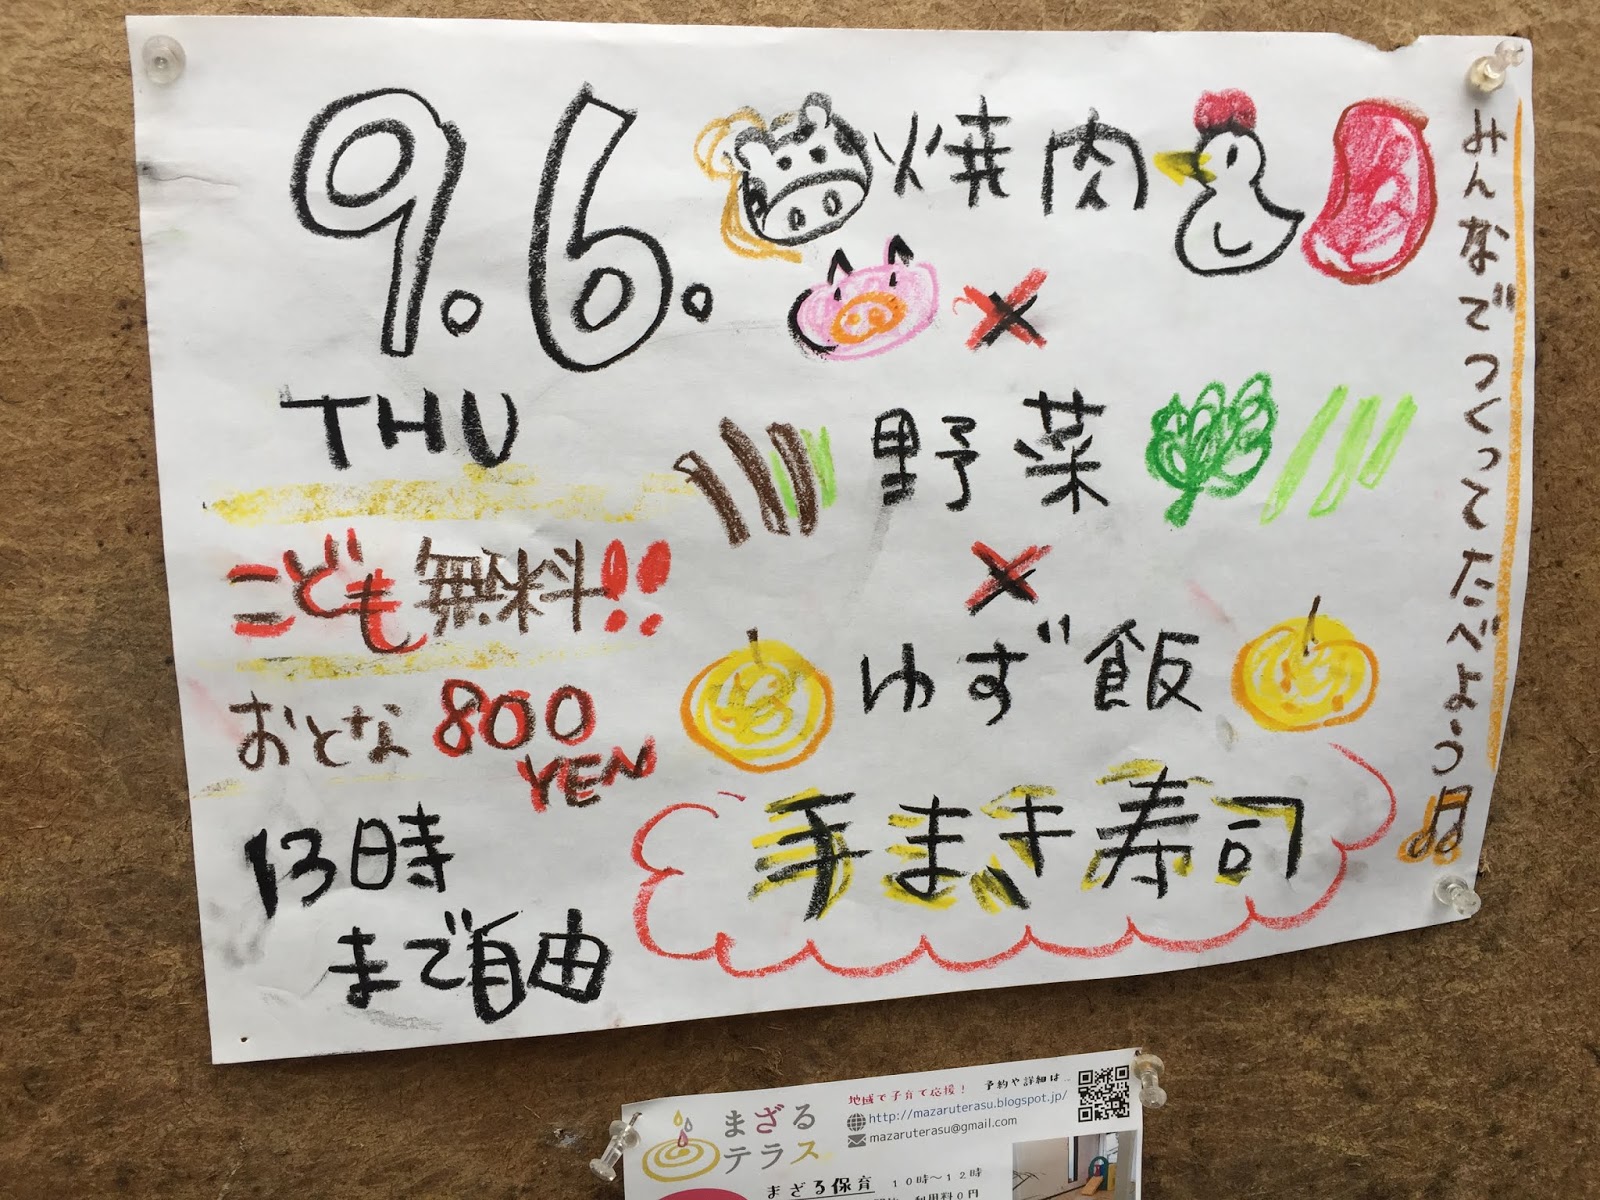 9.6.
THU
こども無料!!
おとな 800
YEN
13時
まで自由
焼肉
×
野菜
×
ゆず飯
手まき寿司
みんなでつくってたべよう♫
まざる
テラス
地域で子育て応援! 予約や詳細は…
http://mazaruterasu.blogspot.jp/
mazaruterasu@gmail.com
まざる保育 10時〜12時
利用料0円